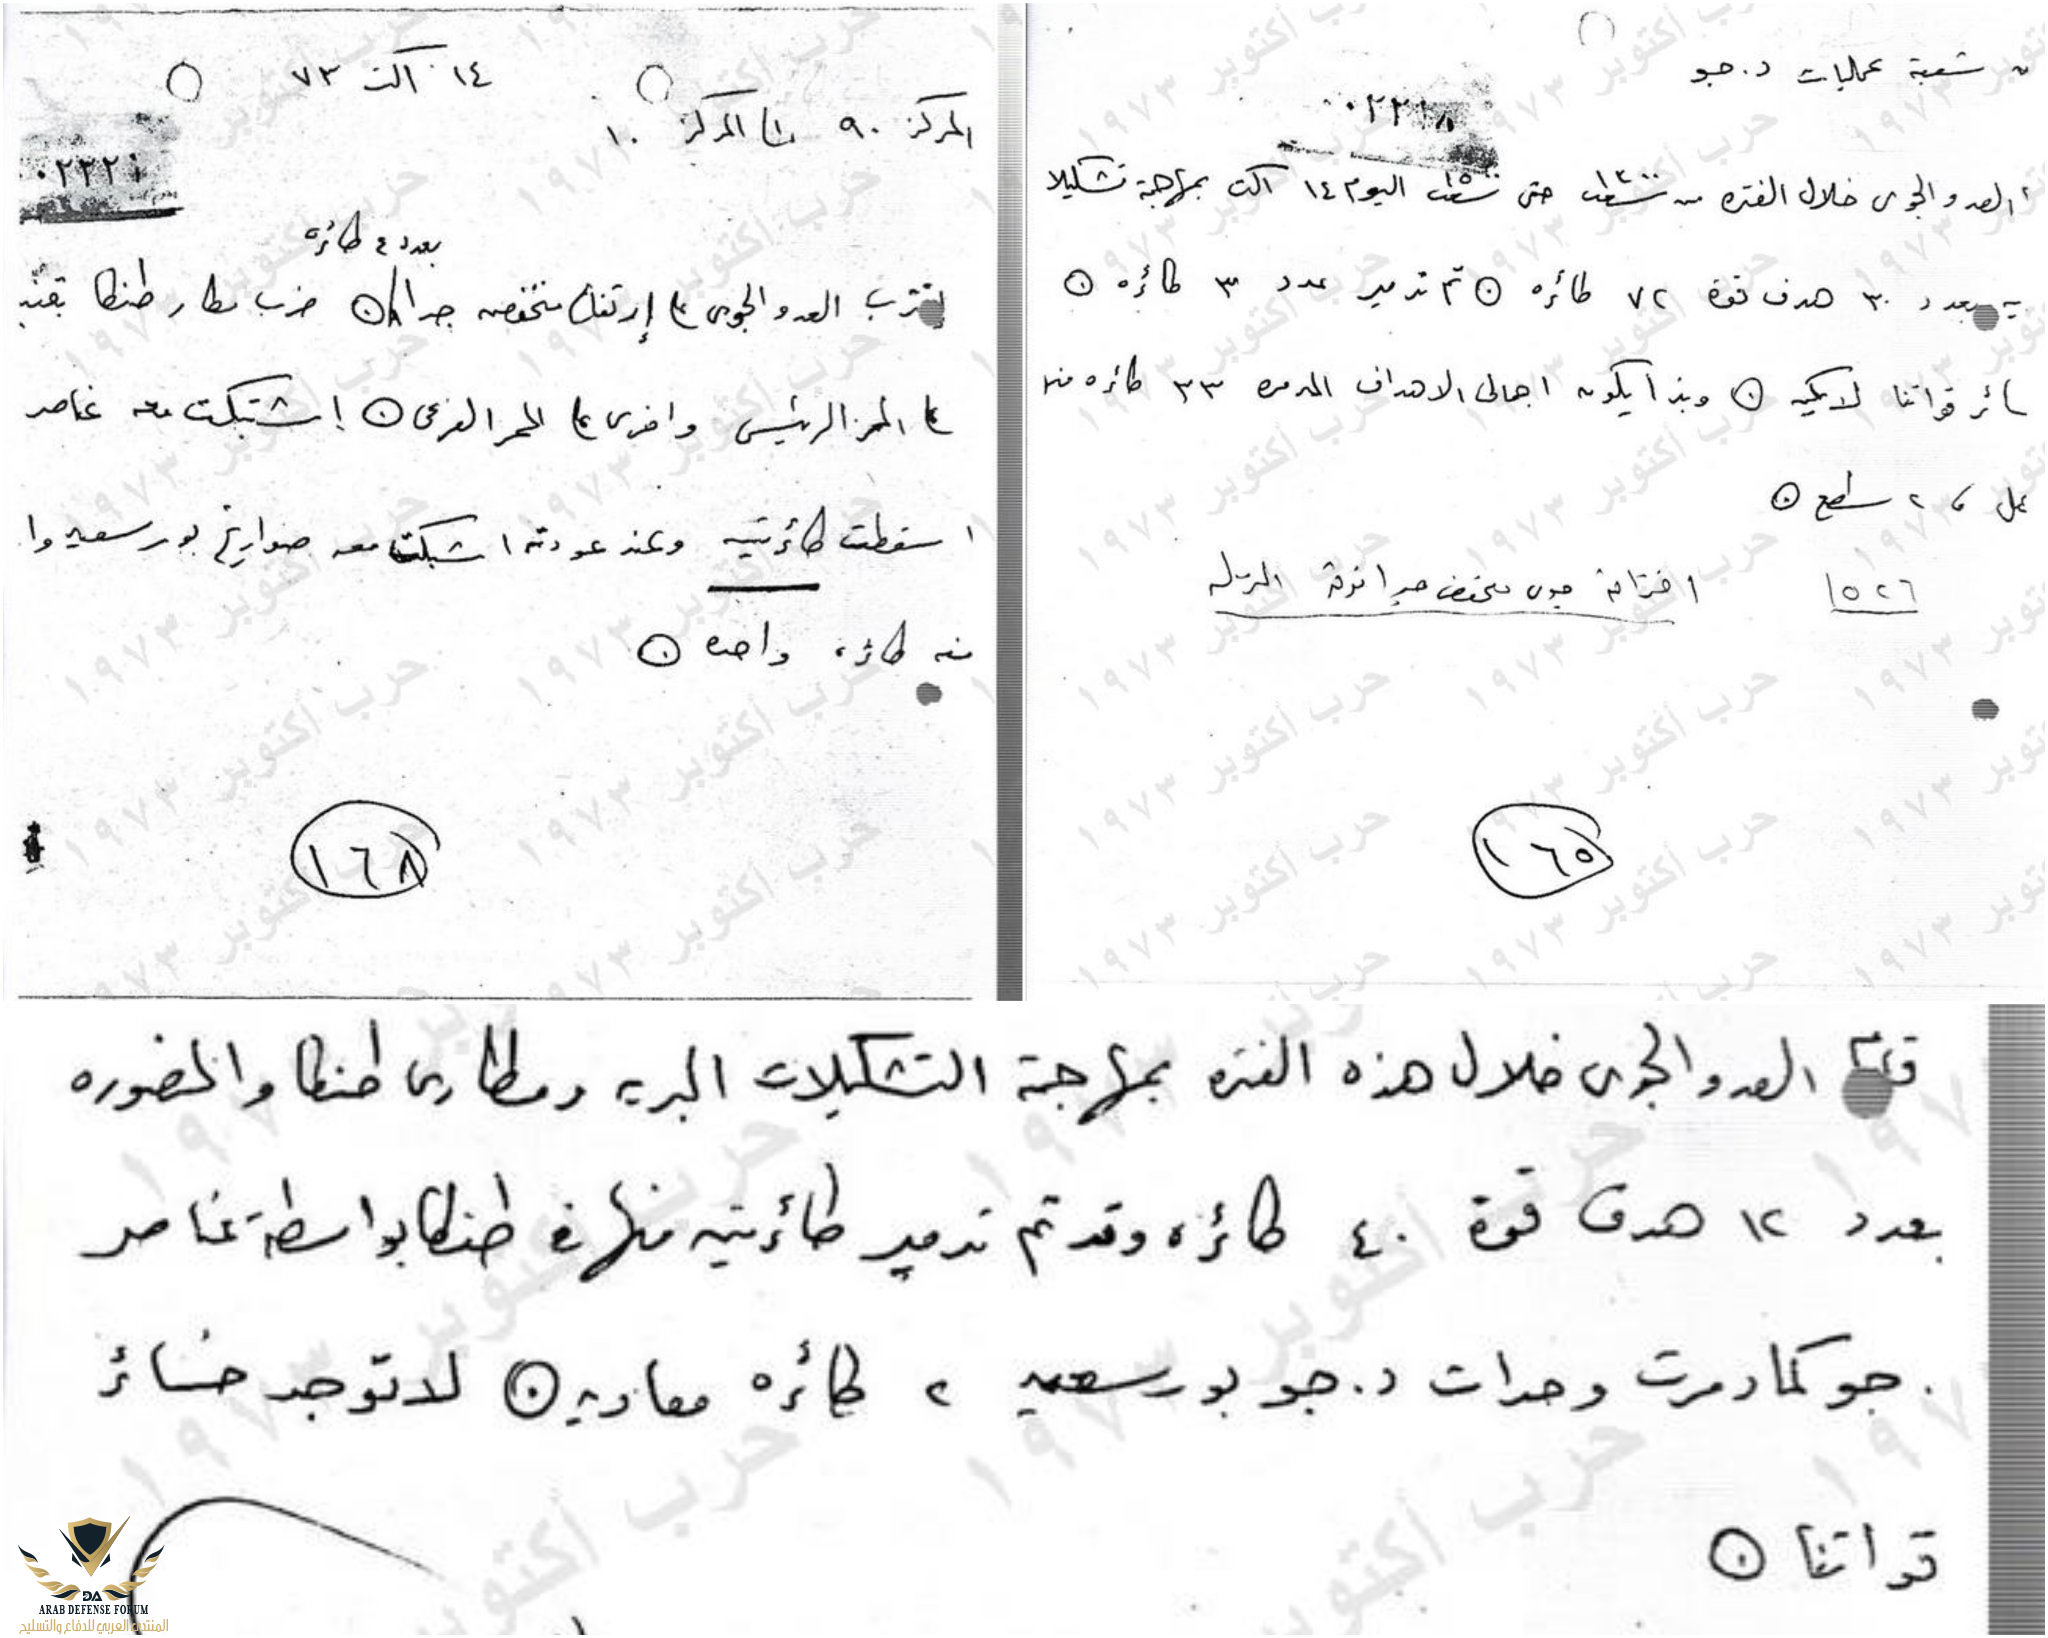 ن شعبة عمليات د.جو
٠٢٢١٨
العدو الجوى خلال الفترة من ١٣٠٠ حتى اليوم ١٤ اكت بمهاجمة تشكيلا
ية بعدد ٣٠ هدف قوة ٧٢ طائره ⊙ تم تدمير عدد ٣ طائره ⊙
سائر قواتنا لايكيه ⊙ وبذا يكون اجمالى الاهداف المدمره ٣٣ طائره منها
عمل ، ٢ سطع ⊙
١٥٢٦ اختراق جوى منخفض جدا فوق
١٦٥
١٤ اكت ٧٣
المركز ٩٠ الى المركز ١٠
٠٢٢٢١
بعدد ٤ طائره
اقترب العدو الجوى على إرتفاع منخفض جدا ⊙ ضرب مطار طنطا بقنبـ
على الممر الرئيسى واخرى على الممر الفرعى ⊙ اشتبكت معه عناصر
اسقطت طائرتين وعند عودته اشتبكت معه صواريخ بورسعيد وا
منه طائره واحده ⊙
١٦٨
قام العدو الجوى خلال هذه الفتره بمهاجمة التشكيلات البريه ومطارى طنطا والمنصوره
بعدد ١٢ هدف قوة ٤٠ طائره وقد تم تدمير طائرتين منها فى طنطا بواسطة عناصر
. جو كما دمرت وحدات د.جو بورسعيد ٢ طائره معاديه ⊙ لا توجد خسائر
قواتنا ⊙
حرب أكتوبر ١٩٧٣
DA
ARAB DEFENSE FORUM
المنتدى العربي للدفاع والتسليح